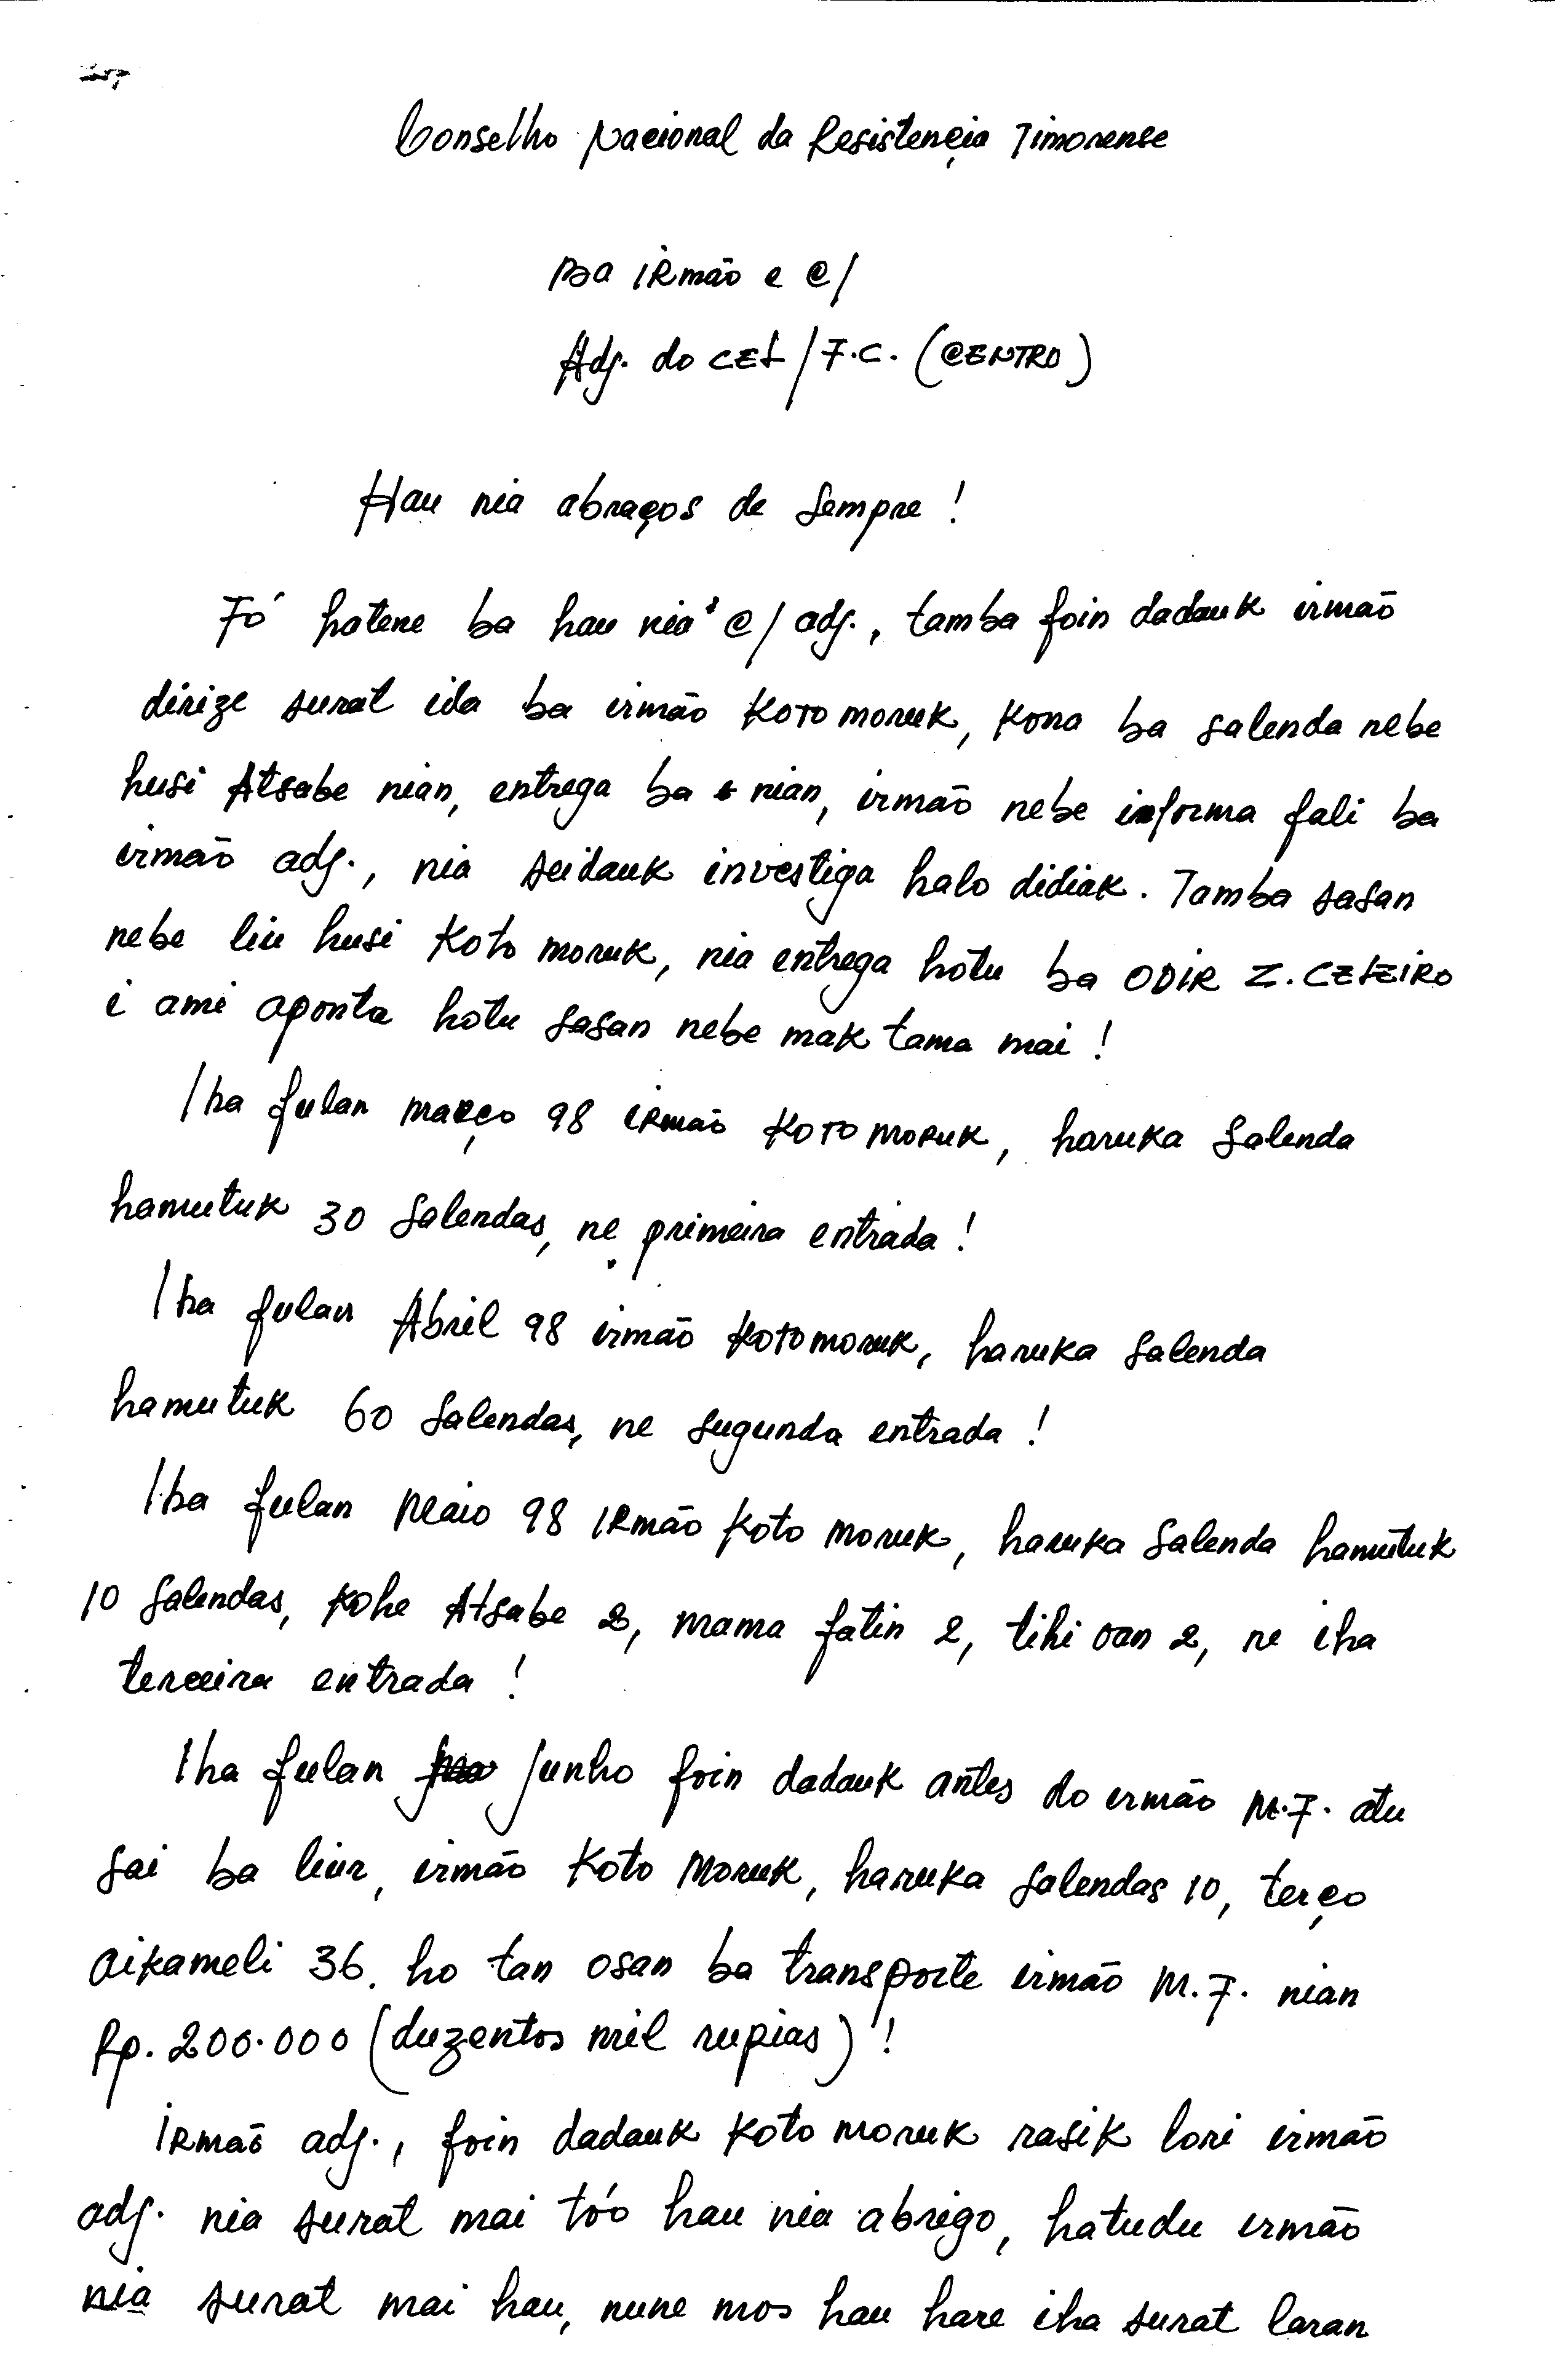 Conselho Nacional da Resistençia Timorense
Ba IRmão e @/
Adj. do CEL/F.C. (CENTRO)
Hau nia abraços de sempre !
Fó hatene ba hau nia @/ adj., tamba foin dadauk irmão
dirize surat ida ba irmão Koto moruk, kona ba salenda nebe
husi Atsabe nian, entrega ba nian, irmão nebe informa fali ba
irmão adj., nia seidauk investiga halo didiak. Tamba sasan
nebe liu husi Koto moruk, nia entrega hotu ba ODIR Z. CELEIRO
i ami aponta hotu sasan nebe mak tama mai !
Iha fulan março 98 irmão Koto moruk, haruka salenda
hamutuk 30 salendas, ne primeira entrada !
Iha fulan Abril 98 irmão Kotomoruk, haruka salenda
hamutuk 60 salendas, ne sugunda entrada !
Iha fulan Maio 98 IRmão Koto moruk, haruka salenda hamutuk
10 salendas, Kohe Atsabe 2, mama fatin 2, tihi oan 2, ne iha
terceira entrada !
Iha fulan junho foin dadauk antes do irmão M.F. atu
sai ba liur, irmão Koto Moruk, haruka salendas 10, terço
aikameli 36. ho tan osan ba transporte irmão M.F. nian
Rp. 200.000 (duzentos mil rupias) !
IRmão adj., foin dadauk Koto moruk rasik lori irmão
adj. nia surat mai tóo hau nia abrigo, hatudu irmão
nia surat mai hau, nune mos hau hare iha surat laran